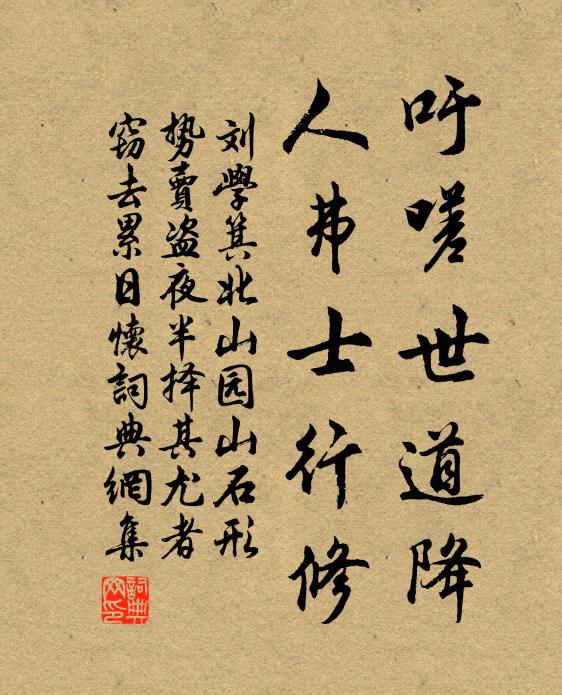 吁嗟世道降
人弗士行修
刘學箕北山园山石形
势賣盗夜半择其尤者
窃去累日懷詞典網集
詞典网印